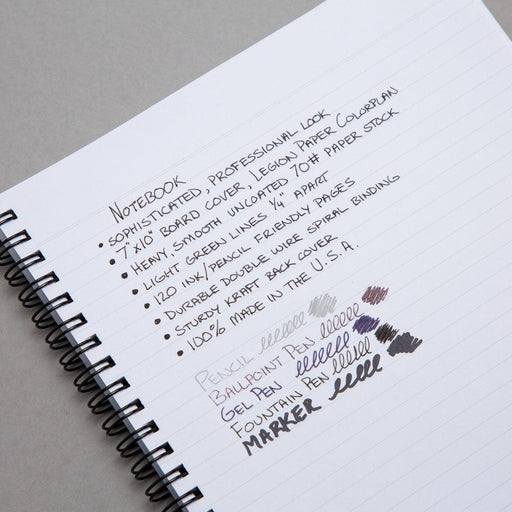 NOTEBOOK
• SOPHISTICATED, PROFESSIONAL LOOK
• 7"X10" BOARD COVER, LEGION PAPER COLORPLAN
• HEAVY, SMOOTH UNCOATED 70# PAPER STOCK
• LIGHT GREEN LINES 1/4" APART
• 120 INK/PENCIL FRIENDLY PAGES
• DURABLE DOUBLE WIRE SPIRAL BINDING
• STURDY KRAFT BACK COVER
• 100% MADE IN THE U.S.A.
PENCIL
BALLPOINT PEN
GEL PEN
FOUNTAIN PEN
MARKER